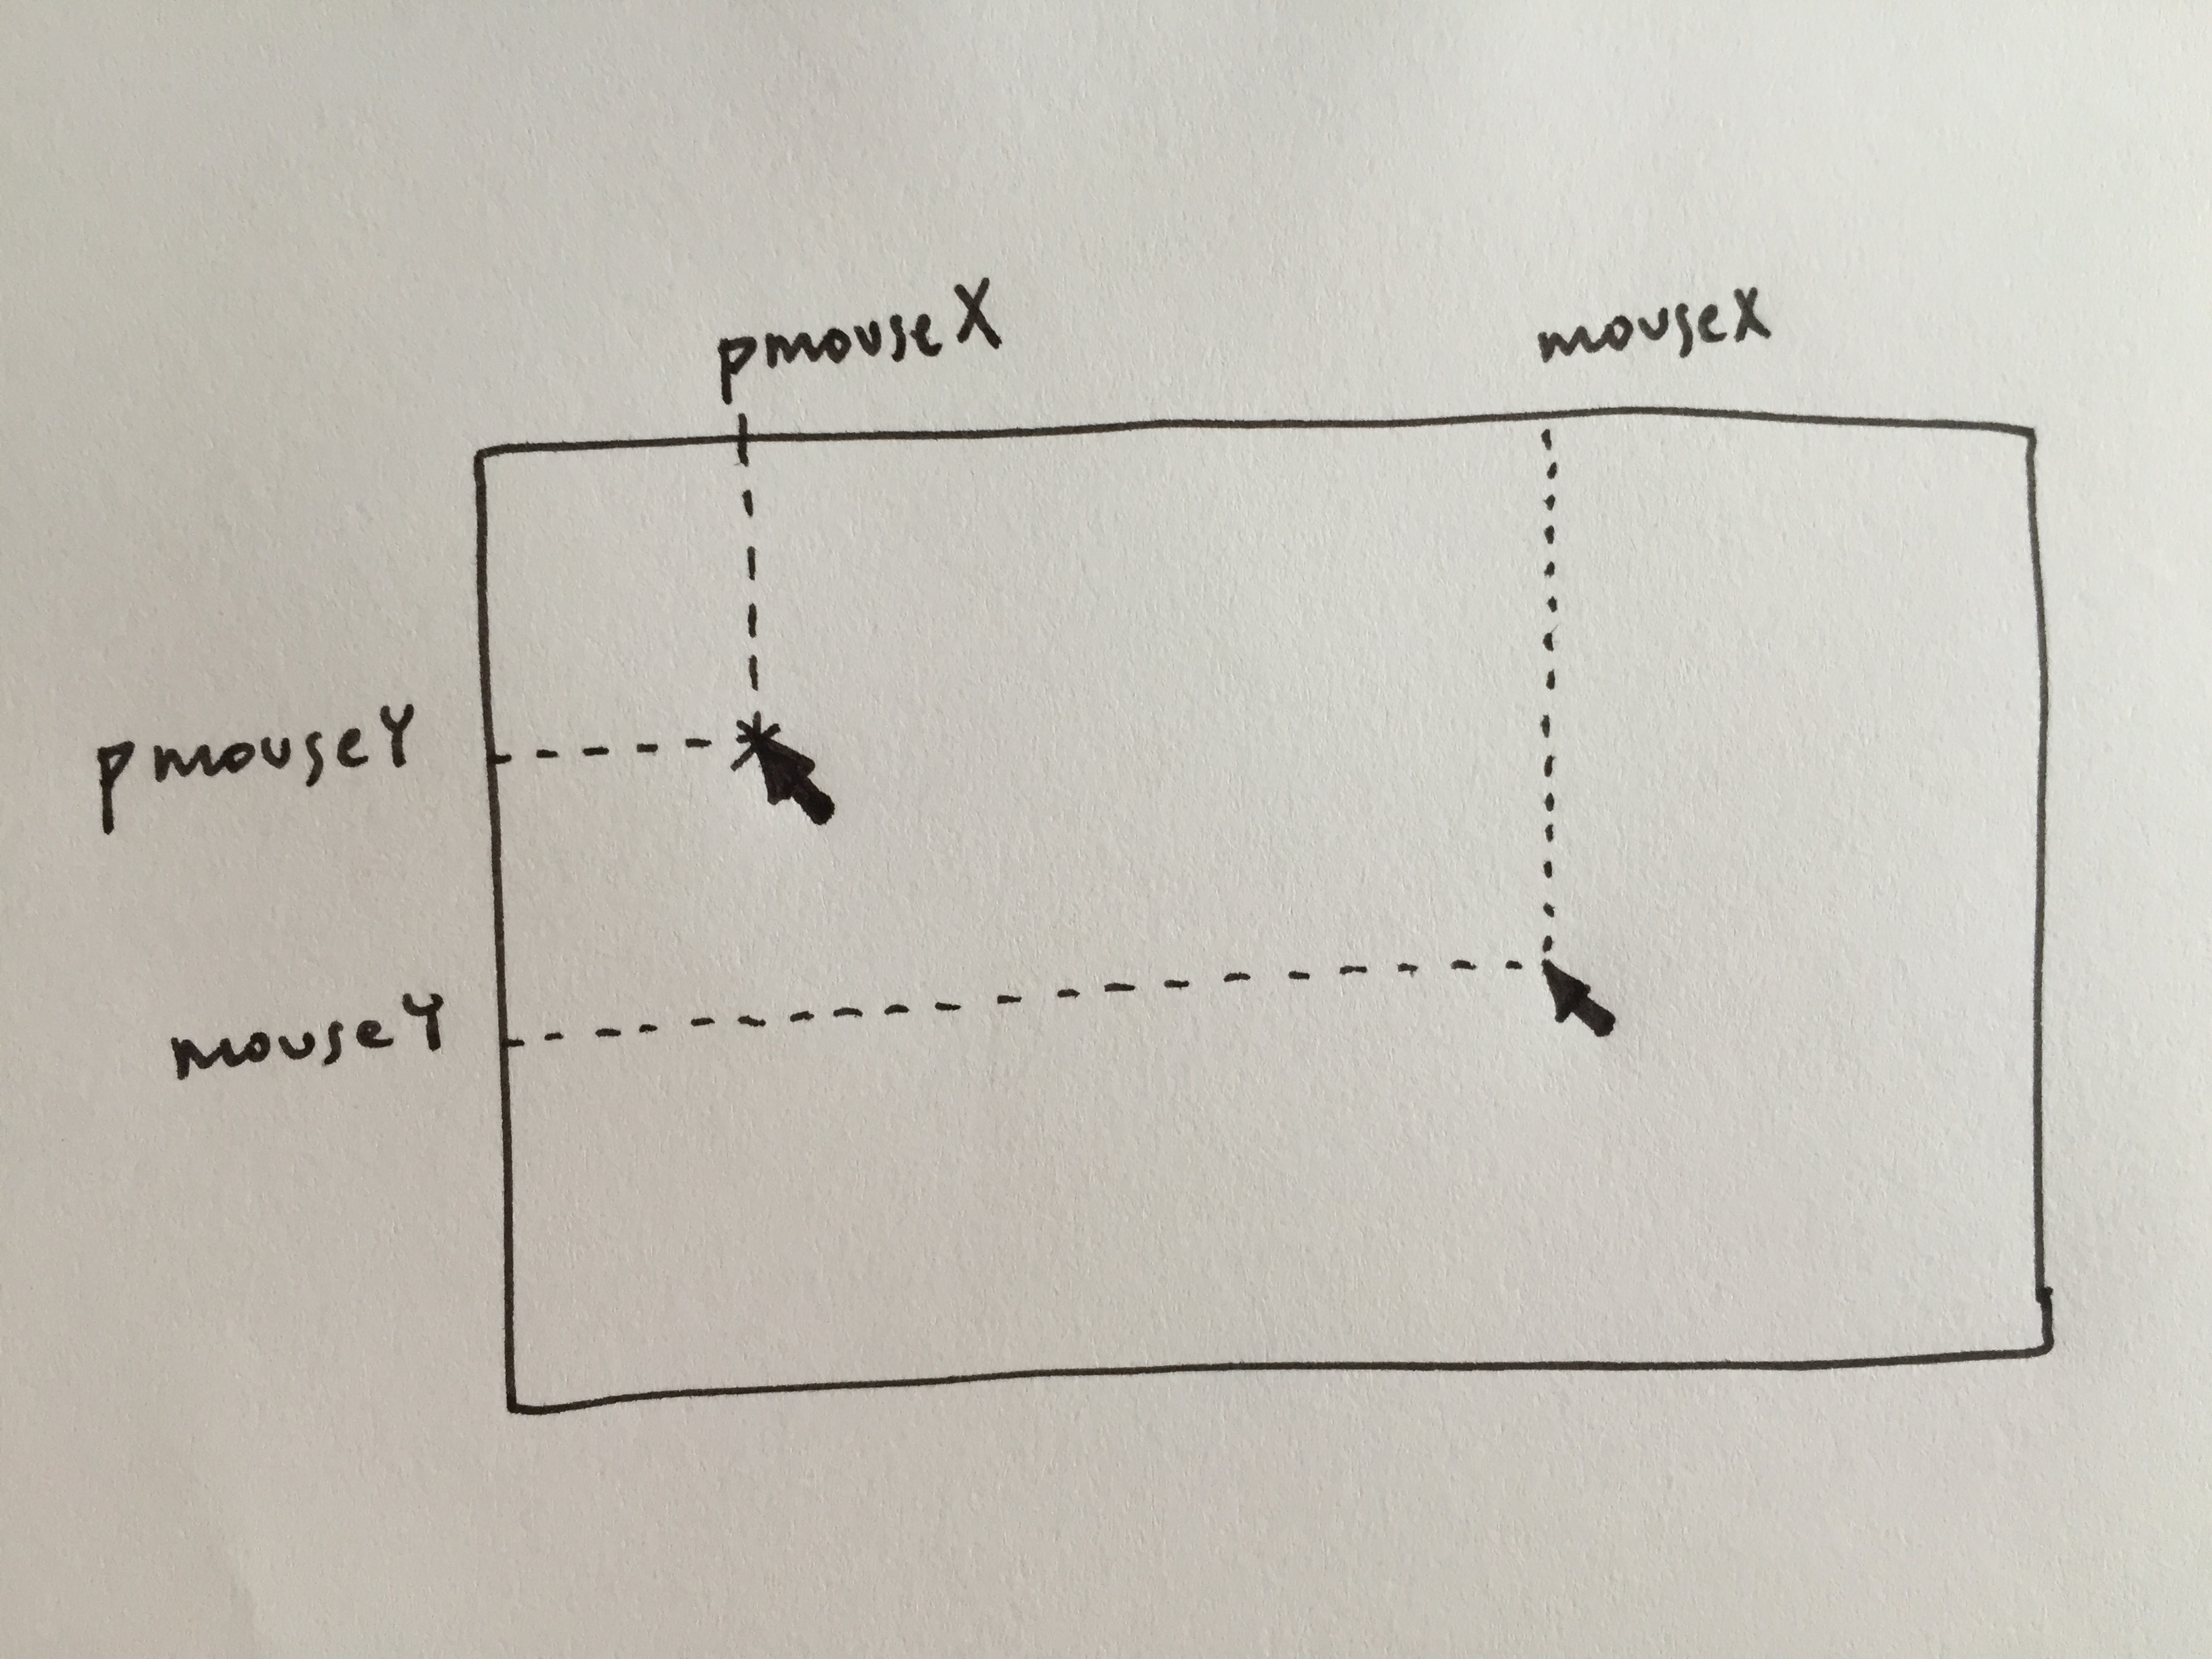 pmouseX
mouseX
pmouseY
mouseY